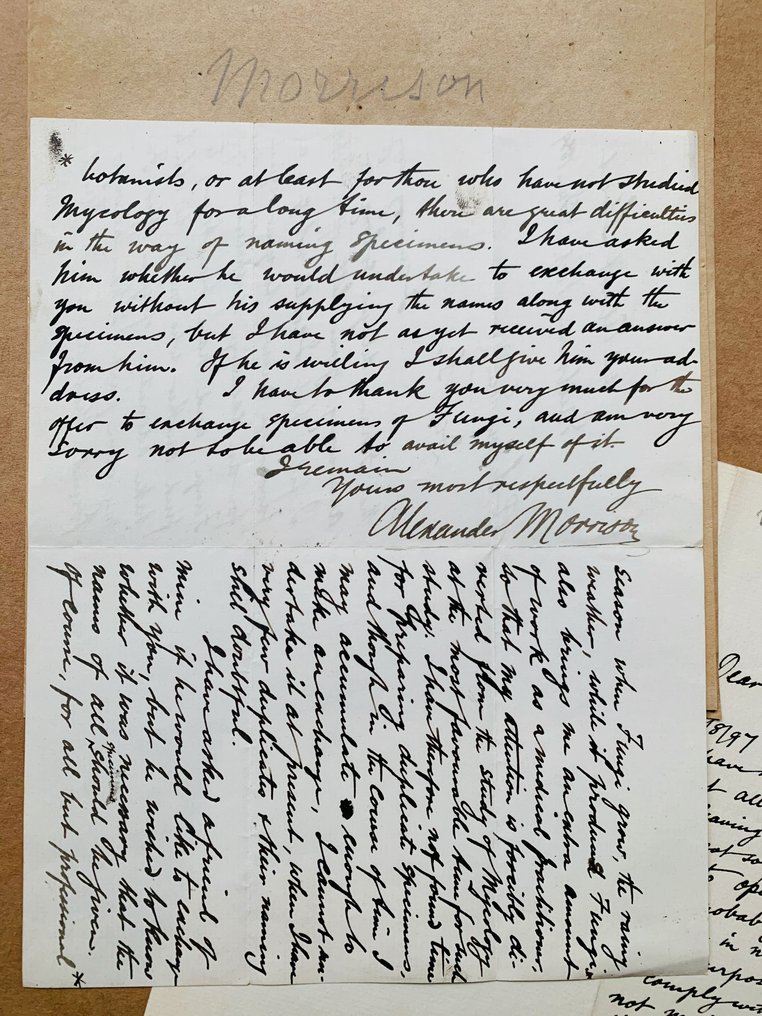 Morrison
* botanists, or at least for those who have not studied
Mycology for a long time, there are great difficulties
in the way of naming specimens. I have asked
him whether he would undertake to exchange with
you without his supplying the names along with the
specimens, but I have not as yet received an answer
from him. If he is willing I shall give him your ad-
dress. I have to thank you very much for the
offer to exchange specimens of Fungi, and am very
sorry not to be able to avail myself of it.
I remain
Yours most respectfully
Alexander Morrison
season when Fungi grow, the rainy
weather, while it produces Fungi
also brings me an extra amount
of work as a medical practitioner,
so that my attention is forcibly di-
verted from the study of Mycology
at the most favourable time for such
study. I have therefore not found time
for preparing duplicate specimens,
and though in the course of time I
may accumulate enough to
make an exchange, I cannot un-
dertake it at present, when I have
very few duplicates & their naming
still doubtful.
I have asked a friend of
mine if he would like to exchange
with you, but he wished to know
whether it was necessary that the
names of all specimens should be given.
Of course, for all but professional *
Dear
8/97
have
all
comply
not